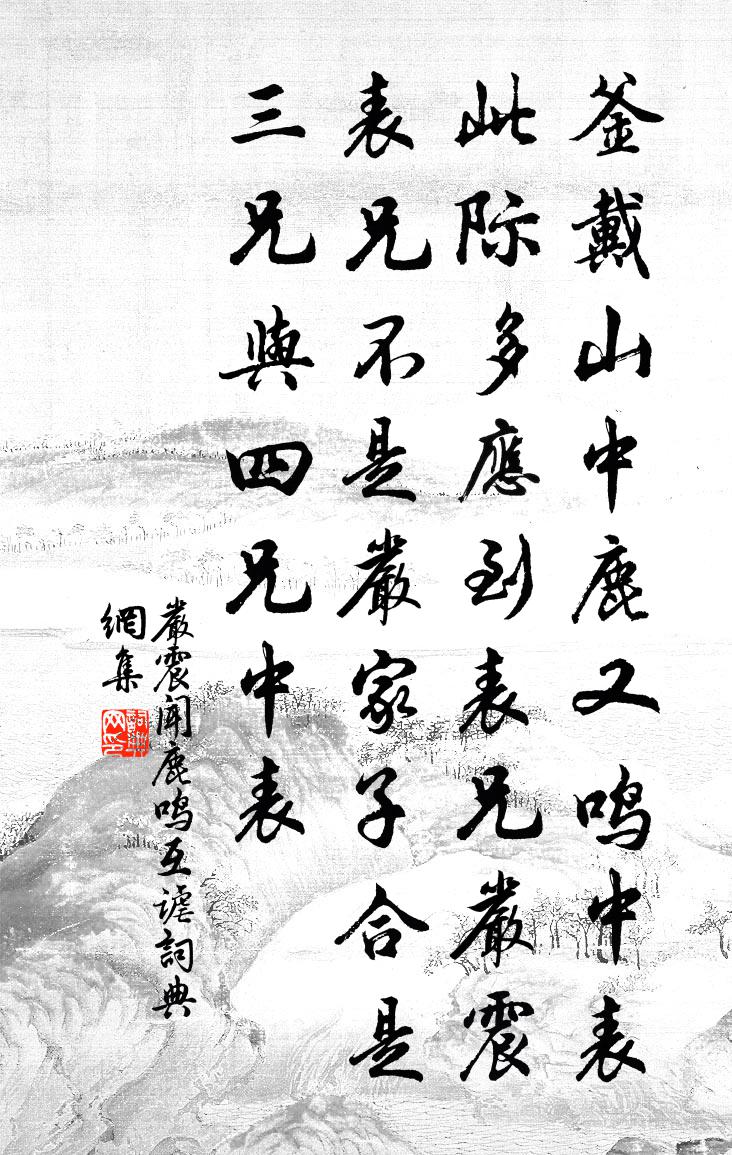 釜戴山中鹿又鳴中表
此際多應到表兄嚴震
表兄不是嚴家子合是
三兄與四兄中表
嚴震聞鹿鳴互謔詞典
網集